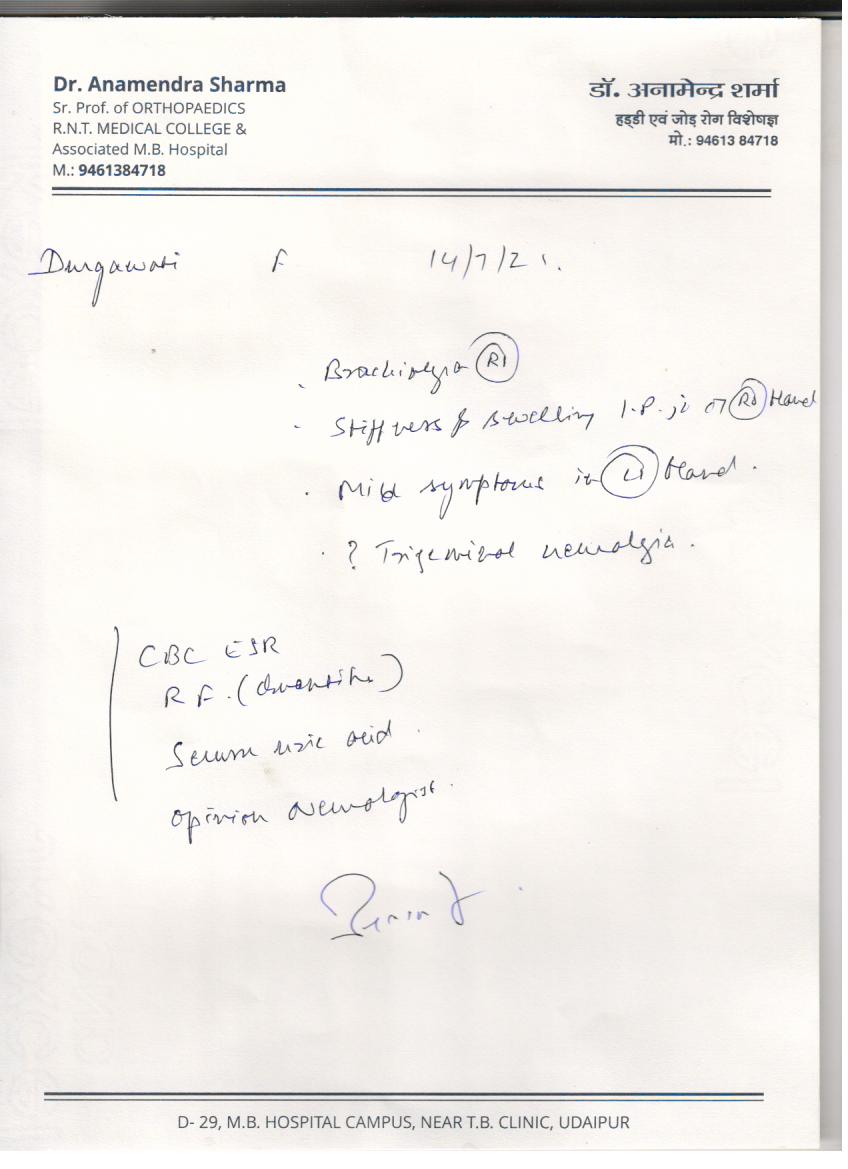 Dr. Anamendra Sharma
Sr. Prof. of ORTHOPAEDICS
R.N.T. MEDICAL COLLEGE &
Associated M.B. Hospital
M.: 9461384718
डॉ. अनामेन्द्र शर्मा
हड्डी एवं जोड़ रोग विशेषज्ञ
मो.: 94613 84718
Durgawati F 14/7/21.
. Brachialgia Rt
- Stiffness & swelling I.P. jt of Rt Hand
. Mild symptoms in Lt Hand.
. ? Trigeminal neuralgia.
CBC ESR
R F. ( )
Serum uric acid.
Opinion Neurologist.
D- 29, M.B. HOSPITAL CAMPUS, NEAR T.B. CLINIC, UDAIPUR